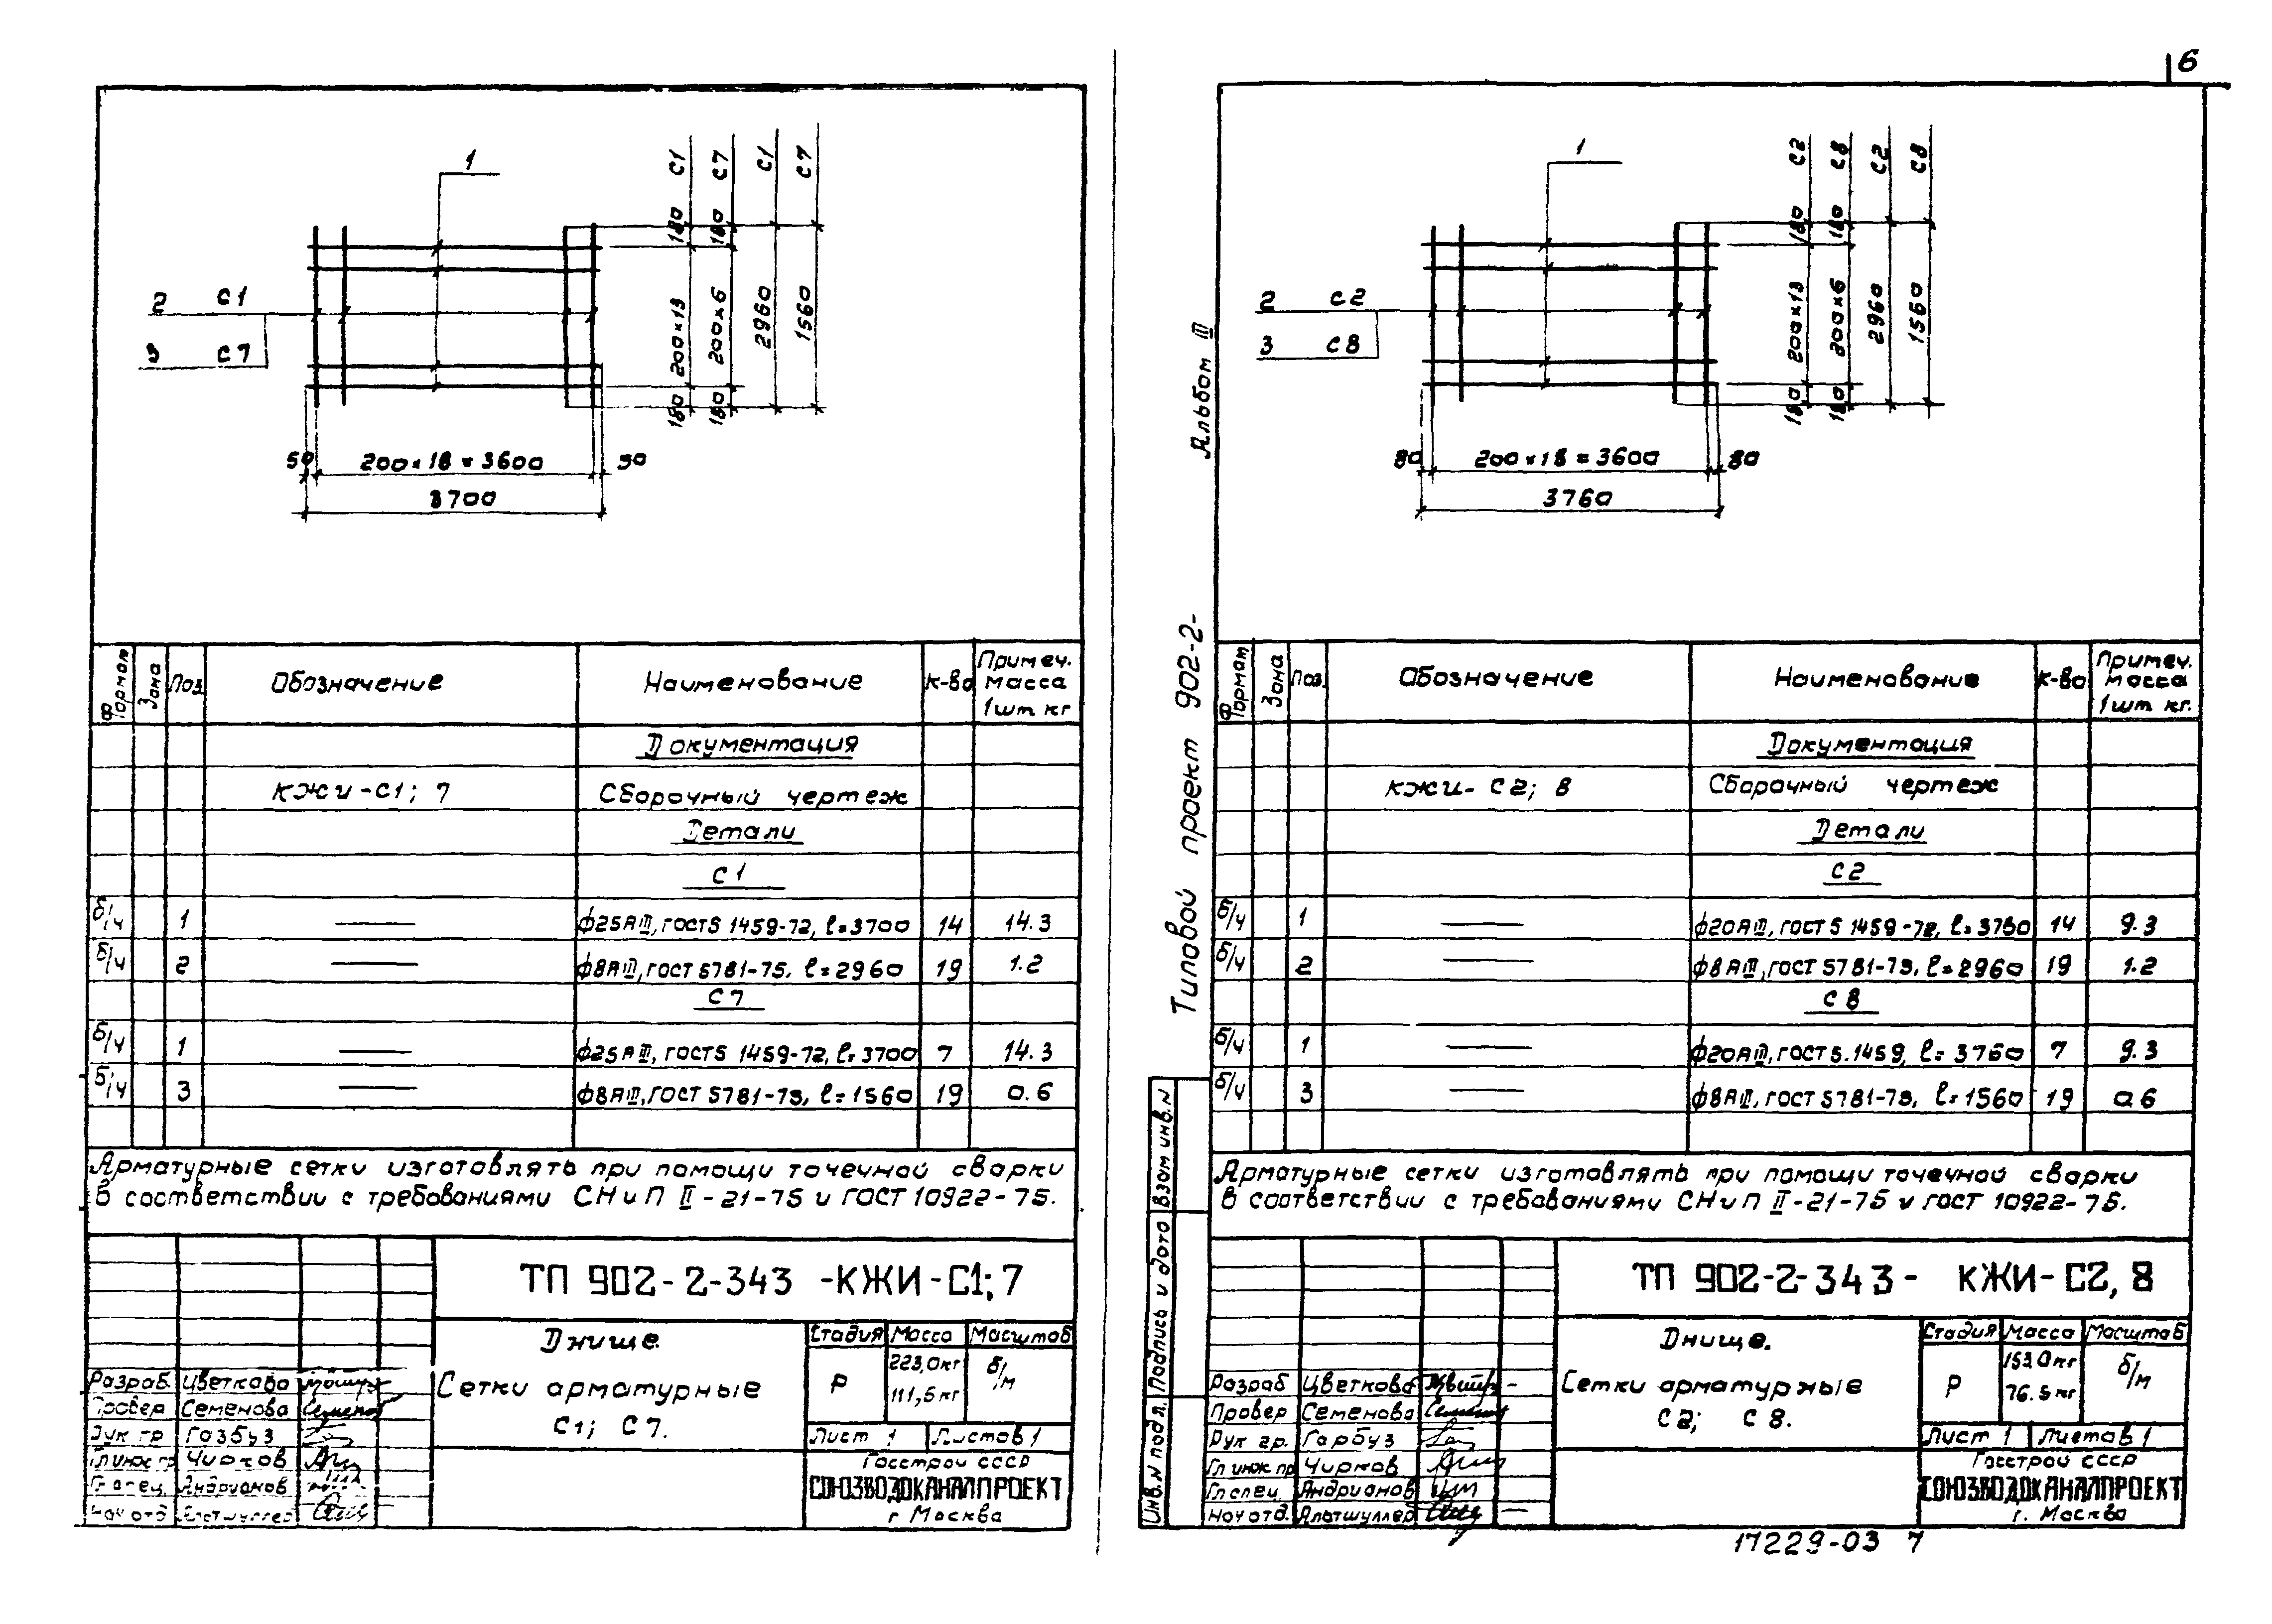 6
1
2 С1
3 С7
180 200×13 180 С1
180 200×6 180 С7
2960 С1
1560 С7
50 200×18=3600 50
3700
Формат Зона Поз. Обозначение Наименование К-во Примеч. масса 1шт. кг
Документация
КЖИ-С1; 7 Сборочный чертеж
Детали
С1
б/ч 1 — ф25АIII, ГОСТ 5 1459-72, ℓ=3700 14 14.3
б/ч 2 — ф8АIII, ГОСТ 5781-75, ℓ=2960 19 1.2
С7
б/ч 1 — ф25АIII, ГОСТ 5 1459-72, ℓ=3700 7 14.3
б/ч 3 — ф8АIII, ГОСТ 5781-75, ℓ=1560 19 0.6
Арматурные сетки изготовлять при помощи точечной сварки
в соответствии с требованиями СНиП II-21-75 и ГОСТ 10922-75.
ТП 902-2-343 -КЖИ-С1; 7
Днище.
Сетки арматурные
С1; С7.
Стадия Масса Масштаб
Р 223,0кг б/м
111,5кг
Лист 1 Листов 1
Госстрой СССР
СОЮЗВОДОКАНАЛПРОЕКТ
г Москва
Разраб. Цветкова
Провер Семенова
Рук гр Гарбуз
Гл инж пр Чирков
Гл спец. Андрианов
Нач отд Альтшуллер
Альбом III
Типовой проект 902-2-
1
2 С2
3 С8
180 200×13 180 С2
180 200×6 180 С8
2960 С2
1560 С8
80 200×18=3600 80
3760
Формат Зона Поз. Обозначение Наименование К-во Примеч. масса 1шт кг.
Документация
КЖИ- С2; 8 Сборочный чертеж
Детали
С2
б/ч 1 — ф20АIII, ГОСТ 5 1459-72, ℓ=3760 14 9.3
б/ч 2 — ф8АIII, ГОСТ 5781-75, ℓ=2960 19 1.2
С8
б/ч 1 — ф20АIII, ГОСТ 5.1459, ℓ=3760 7 9.3
б/ч 3 — ф8АIII, ГОСТ 5781-75, ℓ=1560 19 0.6
Арматурные сетки изготовлять при помощи точечной сварки
в соответствии с требованиями СНиП II-21-75 и ГОСТ 10922-75.
ТП 902-2-343- КЖИ-С2, 8
Днище.
Сетки арматурные
С2; С8.
Стадия Масса Масштаб
Р 153.0кг б/м
76.5кг
Лист 1 Листов 1
Госстрой СССР
СОЮЗВОДОКАНАЛПРОЕКТ
г. Москва
Разраб Цветкова
Провер Семенова
Рук гр. Гарбуз
Гл инж пр Чирков
Гл спец. Андрианов
Нач отд. Альтшуллер
Инв. N подл. Подпись и дата Взам инв. N
17229-03 7